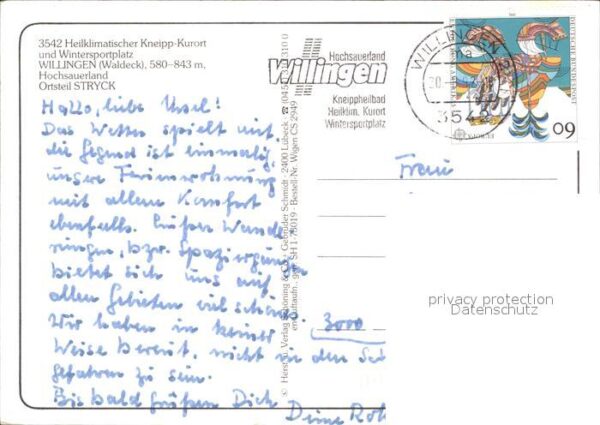 3542 Heilklimatischer Kneipp-Kurort
und Wintersportplatz
WILLINGEN (Waldeck), 580-843 m,
Hochsauerland
Ortsteil STRYCK
Hallo, liebe Ursel!
Das Wetter spielt mit,
die Gegend ist einmalig,
unsere Ferienwohnung
mit allem Komfort
ebenfalls. Außer Wande-
rungen, bzw. Spaziergänge
bietet sich uns auf
allen Gebieten viel schönes.
Wir haben in keiner
Weise bereut, nicht in den Sü
gefahren zu sein.
Bis bald grüßen Dich
Deine Rot
© Herst. u. Verlag Schöning & Co. · Gebrüder Schmidt · 2400 Lübeck
SH 1-78019 · Bestell-Nr. Wigen CS 2949
Hochsauerland
Willingen
Kneippheilbad
Heilklim. Kurort
Wintersportplatz
WILLINGEN
3542
DEUTSCHE BUNDESPOST
60
Frau
3000
privacy protection
Datenschutz